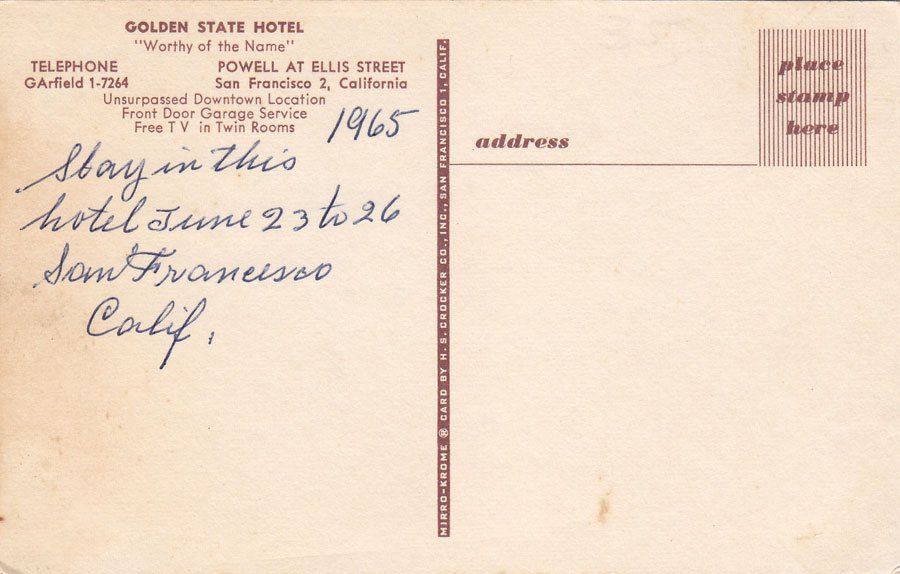 GOLDEN STATE HOTEL
"Worthy of the Name"
TELEPHONE POWELL AT ELLIS STREET
GArfield 1-7264 San Francisco 2, California
Unsurpassed Downtown Location
Front Door Garage Service
Free TV in Twin Rooms
1965
Stay in this
hotel June 23 to 26
San Francesco
Calif.
MIRRO-KROME ® CARD BY H. S. CROCKER CO., INC., SAN FRANCISCO 1, CALIF.
place
stamp
here
address